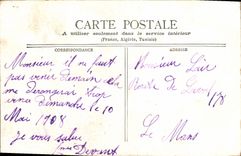 CARTE POSTALE
A utiliser seulement dans le service intérieur
(France, Algérie, Tunisie)
CORRESPONDANCE
ADRESSE
Monsieur il ne faut
pas venir Demain cela
me Derangerai trop
venez Dimanche le 10
Mai 1908
je vous salue
Monsieur
Route de
Le Mans